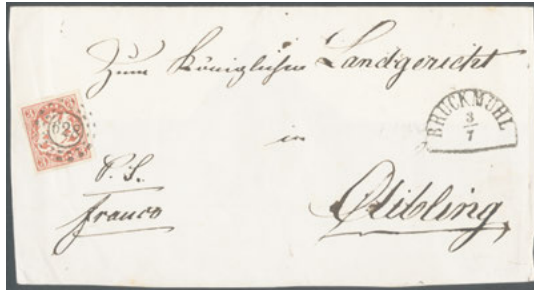 Zum Königlichen Landgericht
BRUCKMÜHL
3
7
in
P. S.
franco
Aibling